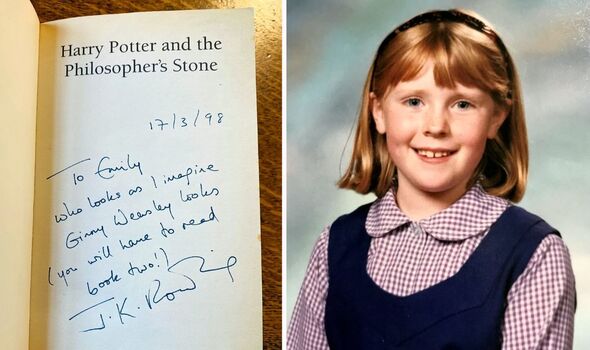 Harry Potter and the
Philosopher's Stone
17/3/98
To Emily
who looks as I imagine
Ginny Weasley looks
(you will have to read
book two!)
J.K. Rowling